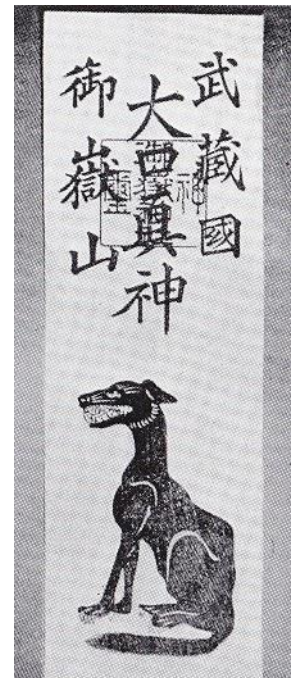 武藏國
大口眞神
御嶽山